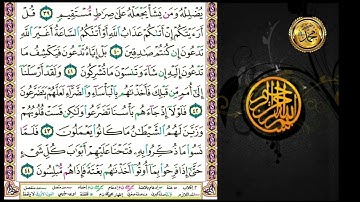 يُضْلِلْهُ وَمَن يَشَأْ يَجْعَلْهُ عَلَىٰ صِرَٰطٍ مُّسْتَقِيمٍ ٣٩ قُلْ
أَرَءَيْتَكُمْ إِنْ أَتَىٰكُمْ عَذَابُ ٱللَّهِ أَوْ أَتَتْكُمُ ٱلسَّاعَةُ أَغَيْرَ ٱللَّهِ
تَدْعُونَ إِن كُنتُمْ صَٰدِقِينَ ٤٠ بَلْ إِيَّاهُ تَدْعُونَ فَيَكْشِفُ مَا
تَدْعُونَ إِلَيْهِ إِن شَآءَ وَتَنسَوْنَ مَا تُشْرِكُونَ ٤١ وَلَقَدْ أَرْسَلْنَآ
إِلَىٰٓ أُمَمٍ مِّن قَبْلِكَ فَأَخَذْنَٰهُم بِٱلْبَأْسَآءِ وَٱلضَّرَّآءِ لَعَلَّهُمْ يَتَضَرَّعُونَ
٤٢ فَلَوْلَآ إِذْ جَآءَهُم بَأْسُنَا تَضَرَّعُوا۟ وَلَٰكِن قَسَتْ قُلُوبُهُمْ
وَزَيَّنَ لَهُمُ ٱلشَّيْطَٰنُ مَا كَانُوا۟ يَعْمَلُونَ ٤٣ فَلَمَّا
نَسُوا۟ مَا ذُكِّرُوا۟ بِهِۦ فَتَحْنَا عَلَيْهِمْ أَبْوَٰبَ كُلِّ شَىْءٍ
حَتَّىٰٓ إِذَا فَرِحُوا۟ بِمَآ أُوتُوٓا۟ أَخَذْنَٰهُم بَغْتَةً فَإِذَا هُم مُّبْلِسُونَ ٤٤
محمد
بسم الله الرحمن الرحيم